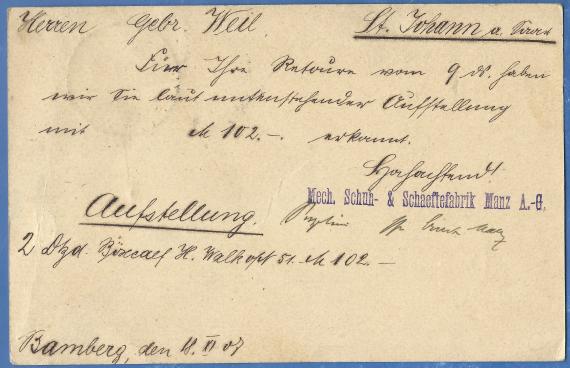 Herren Gebr. Weil. St. Johann a. Saar
Für Ihre Retoure vom 9 ds. haben
wir Sie laut untenstehender Aufstellung
mit M 102.-. erkannt.
Hochachtend!
Mech. Schuh- & Schaeftefabrik Manz A.-G.
Aufstellung.
2 Dtzd. Boxcalf H. 51. M 102.-
Bamberg, den 18. XI 07